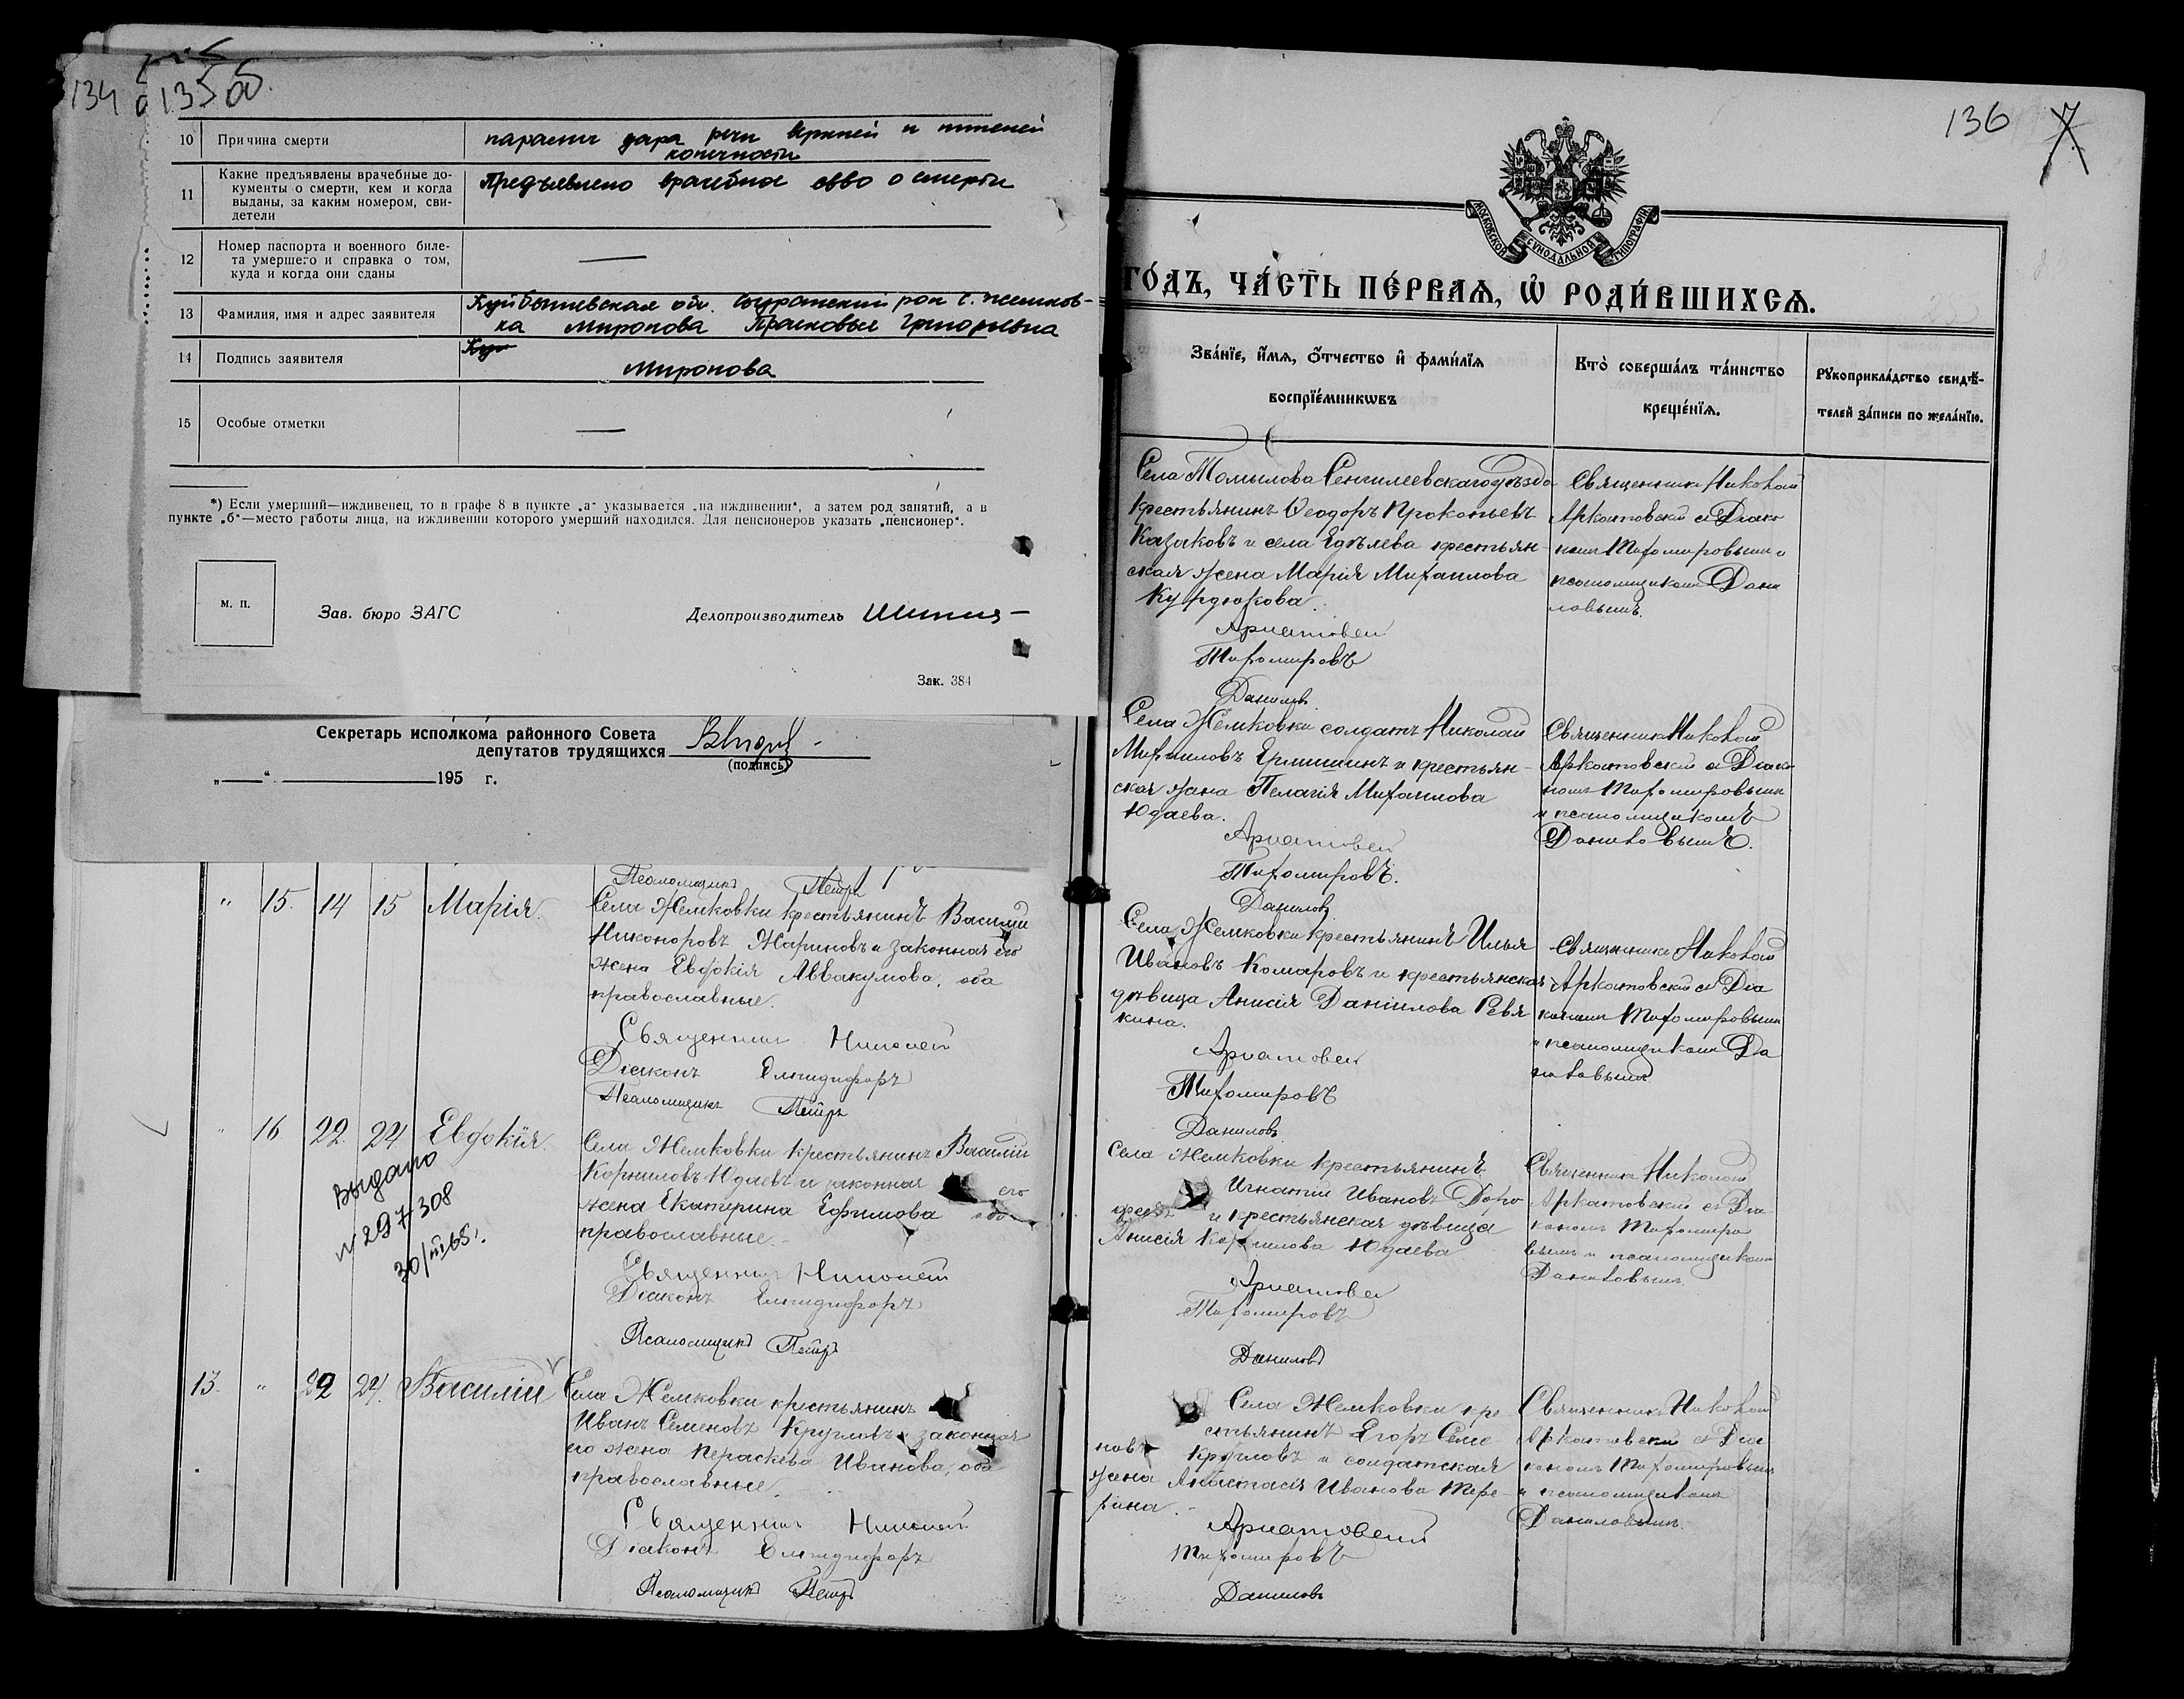 134
135 об.
10 Причина смерти
паралич дара речи верхней и нижней
конечности
11 Какие предъявлены врачебные до-
кументы о смерти, кем и когда
выданы, за каким номером, сви-
детели
Предъявлено врачебное свво о смерти
12 Номер паспорта и военного биле-
та умершего и справка о том,
куда и когда они сданы
—
13 Фамилия, имя и адрес заявителя
Куйбышевская обл. Сызранский рон с. жемков-
ка Миронова Прасковья Григорьевна
14 Подпись заявителя
Миронова
15 Особые отметки
—
*) Если умерший—иждивенец, то в графе 8 в пункте „а“ указывается „на иждивении“, а затем род занятий, а в
пункте „б“—место работы лица, на иждивении которого умерший находился. Для пенсионеров указать „пенсионер“.
м. п.
Зав. бюро ЗАГС
Делопроизводитель
Зак. 384
Секретарь исполкома районного Совета
депутатов трудящихся
(подпись)
„—“ 195 г.
Псаломщикъ Петръ
" 15. 14 15 Марія.
Села Жемковки крестьянинъ Василій
Никоноровъ Жариновъ и законная его
жена Евдокія Аввакумова, оба
православные.
Священникъ Николай
Діаконъ Елпидифоръ
Псаломщикъ Петръ
" 16. 22. 24 Евдокія.
Выдано
№ 297308
30/III 65г.
Села Жемковки крестьянинъ Василій
Корниловъ Юдаевъ и законная его
жена Екатерина Ефимова оба
православные.
Священникъ Николай
Діаконъ Елпидифоръ
Псаломщикъ Петръ
13. " 22 24. Василій
Села Жемковки крестьянинъ
Иванъ Семеновъ Кругловъ и законная
его жена Пераскева Иванова, оба
православные.
Священникъ Николай
Діаконъ Елпидифоръ
Псаломщикъ Петръ
136
МОСКОВСКОЙ СѴНОДАЛЬНОЙ ТИПОГРАФІИ
ГО́ДЪ, ЧА́СТЬ ПЕ́РВАѦ, Ѡ҆ РОДИ́ВШИХСѦ.
Зва́нїе, и҆́мѧ, ѻ҆́тчество и҆ фами́лїѧ
воспрїе́мникѡвъ
Кто̀ соверша́лъ та́инство
креще́нїѧ.
Рꙋкоприкла́дство свидѣ́-
телей за́писи по жела́нїю.
Села Томылова Сенгилеевскаго уѣзда
крестьянинъ Ѳеодоръ Прокопьевъ
Казаковъ и села Едѣлева крестьян-
ская жена Марія Михаилова
Курдюкова.
Архатовскій
Тихомировъ
Даниловъ
Священникъ Николай
Архатовскій съ Діако
номъ Тихомировымъ и
псаломщикомъ Дани
ловымъ.
Села Жемковки солдатъ Николай
Михаиловъ Ермишинъ и крестьян-
ская жена Пелагія Михаилова
Юдаева.
Архатовскій
Тихомировъ.
Даниловъ
Священникъ Николай
Архатовскій съ Діако
номъ Тихомировымъ
и псаломщикомъ
Даниловымъ.
Села Жемковки крестьянинъ Илья
Ивановъ Комаровъ и крестьянская
дѣвица Анисія Даніилова Ревя
кина.
Архатовскій
Тихомировъ
Даниловъ
Священникъ Николай
Архатовскій съ Діа
кономъ Тихомировымъ
и псаломщикомъ Да
ниловымъ
Села Жемковки крестьянинъ
Игнатій Ивановъ Доро
и крестьянская дѣвица
Анисія Корнилова Юдаева
Архатовскій
Тихомировъ
Даниловъ
Священникъ Николай
Архатовскій съ Діа
кономъ Тихомиро
вымъ и псаломщикомъ
Даниловымъ.
Села Жемковки кре
стьянинъ Егоръ Семе
новъ Кругловъ и солдатская
жена Анастасія Иванова Тере
хина.
Архатовскій
Тихомировъ
Даниловъ
Священникъ Николай
Архатовскій съ Діа
кономъ Тихомировымъ
и псаломщикомъ
Даниловымъ.